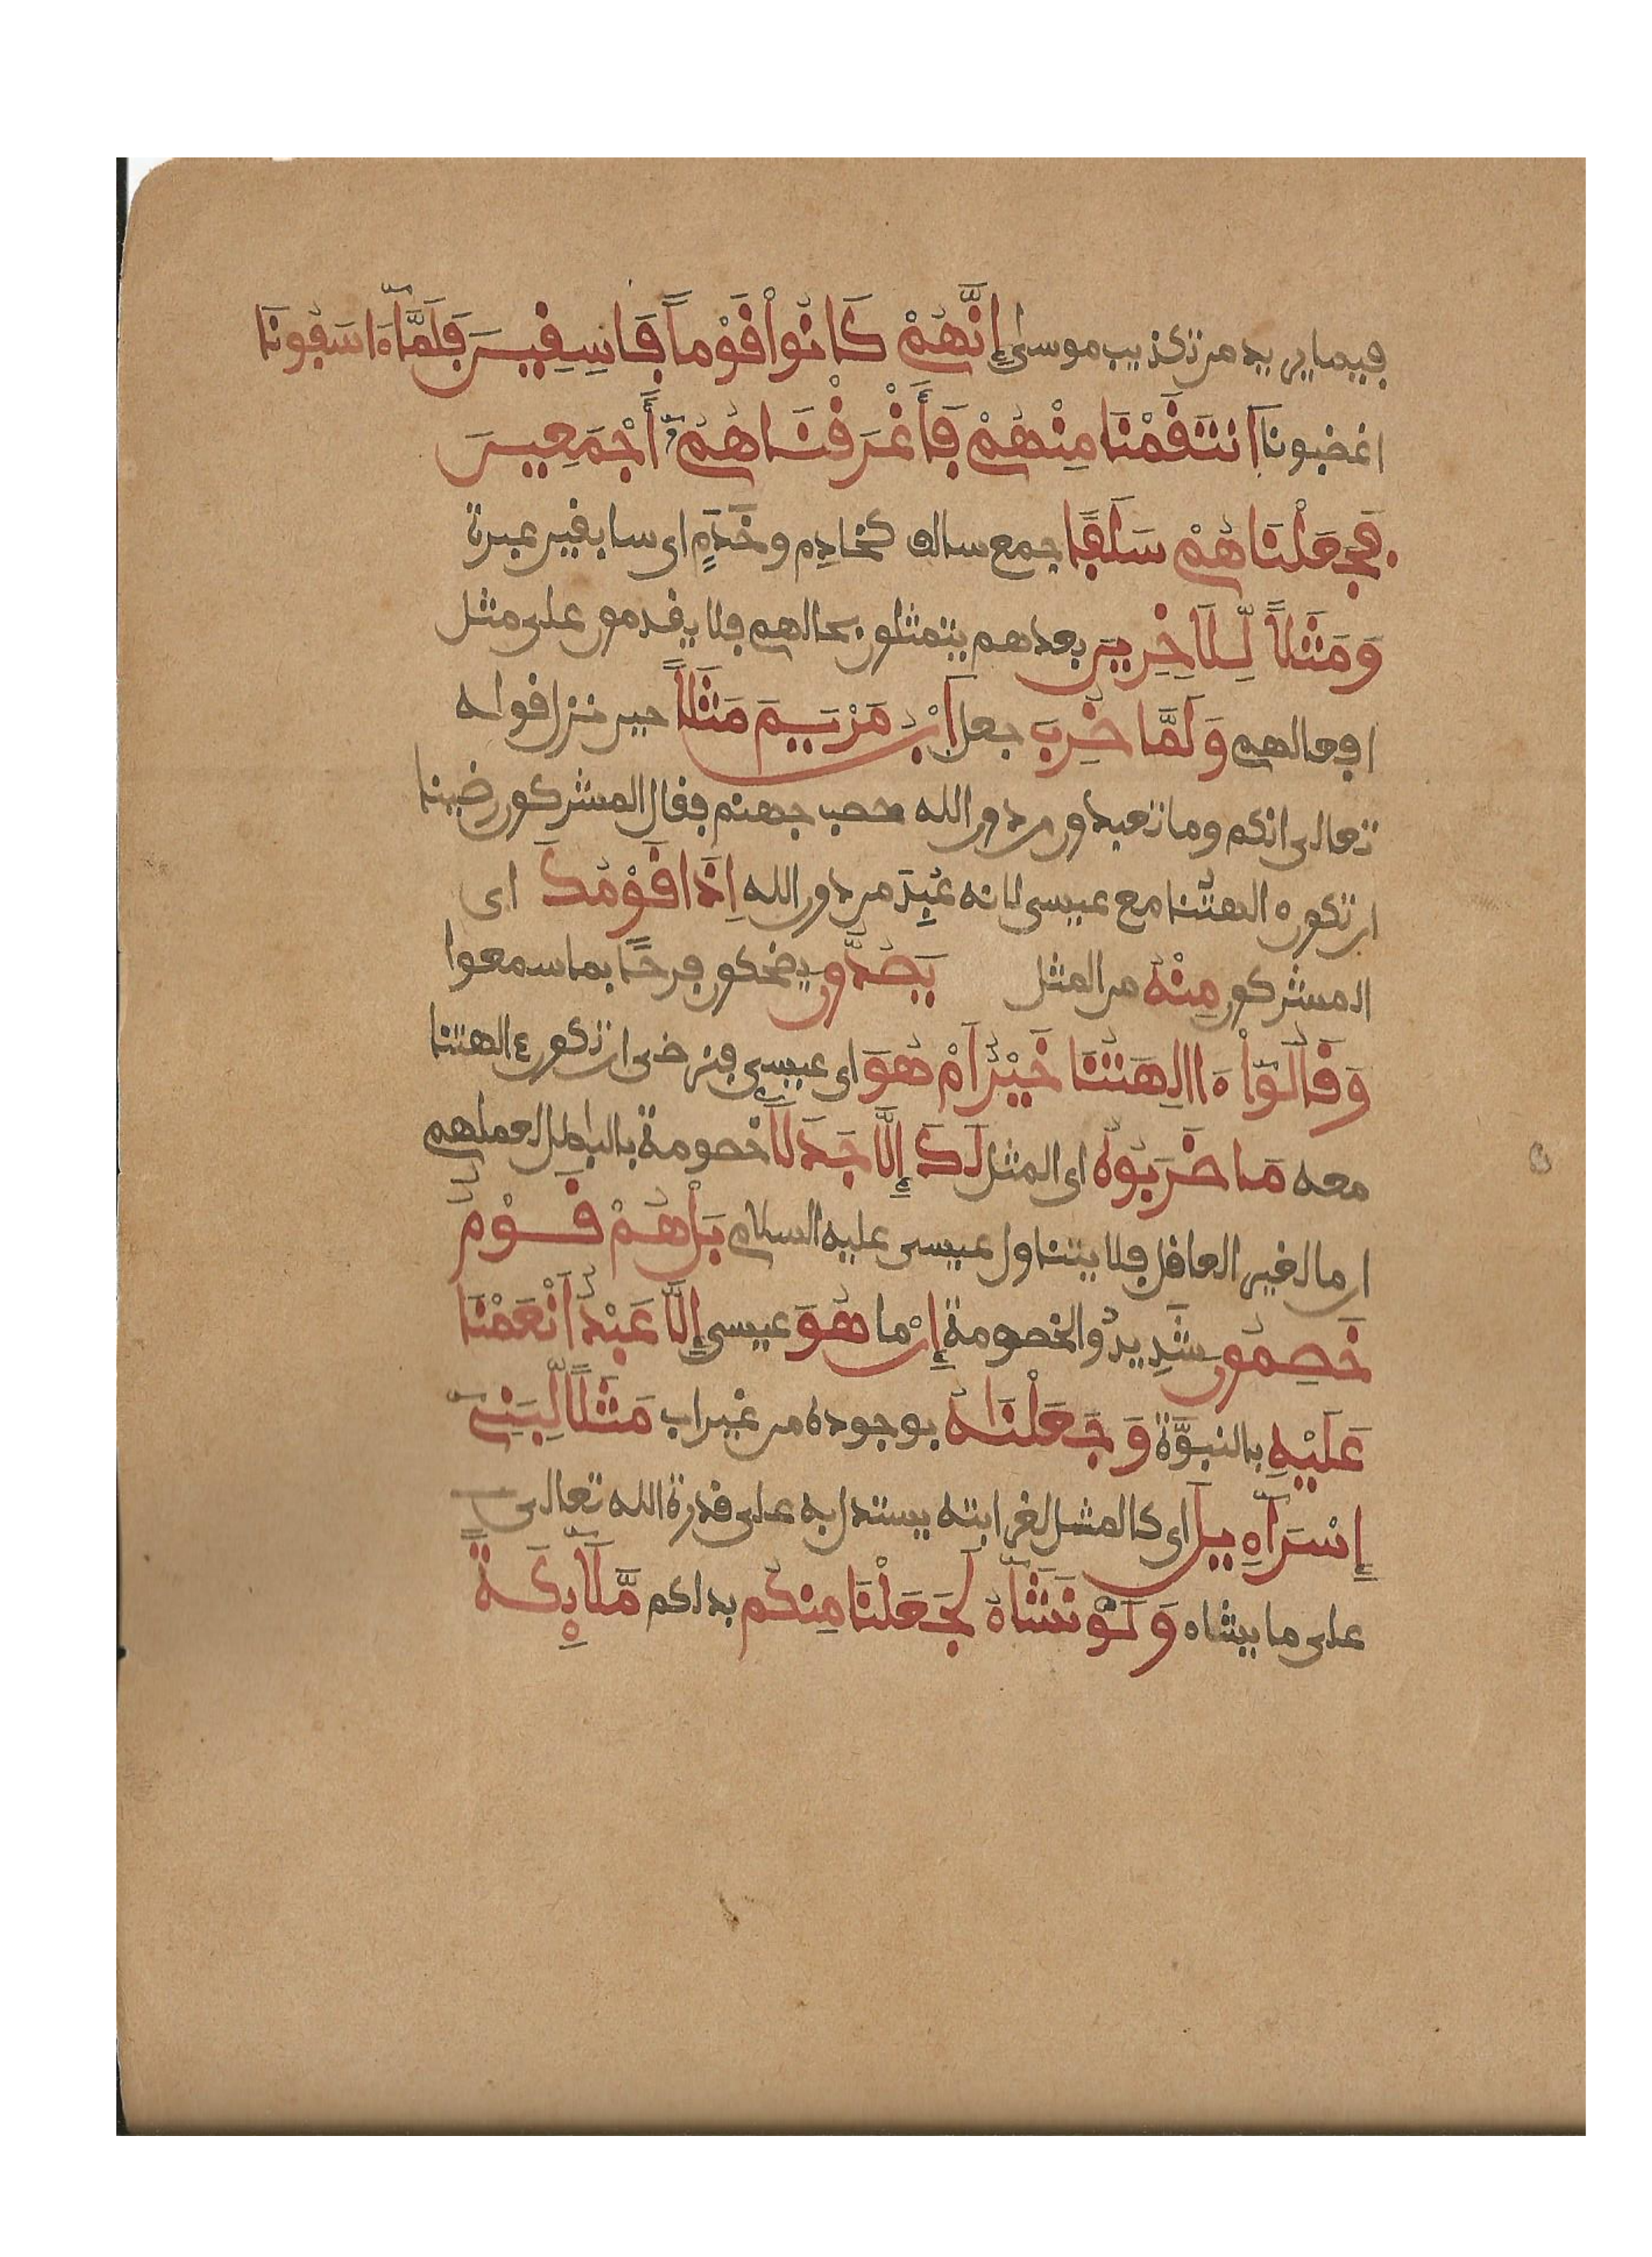 فيما يريد من تكذيب موسى إِنَّهُمْ كَانُواْ قَوْماً فَاسِفِينَ فَلَمَّآ ءَاسَفُونَا
اغضبونا اَنتَقَمْنَا مِنْهُمْ فَأَغْرَقْنَاهُمُۥٓ أَجْمَعِينَ
فَجَعَلْنَاهُمْ سَلَفًا جمع سالف كخادِم وخَدَمٍ اى سابقين عبرة
وَمَثَلاً لِّلَاخِرِينَ بعدهم يتمثلون بحالهم فلا يقدمون على مثل
افعالهم وَلَمَّا ضُرِبَ جعل اَبْنُ مَرْيَمَ مَثَلاً حين نزل قوله
تعالى انكم وما تعبدون من دون الله حصب جهنم فقال المشركون رضينا
ان تكون ءالهتُنا مع عيسى لانه عُبِدَ من دون الله اِذَا قَوْمُكَ اى
المشركون مِنْهُ من المثل يَصُدُّونَ يضحكون فرحًا بما سمعوا
وَقَالُوٓاْ ءَاالِهَتُنَا خَيْرٌ اَمْ هُوَ اى عيسى فنرضى ان تكون ءالهتنا
معه مَا ضَرَبُوهُ اى المثل لَكَ إِلَّا جَدَلَاً خصومة بالباطل لعملهم
ان ما لغير العاقل فلا يتناول عيسى عليه السلام بَلْ هُمْ قَوْمٌ
خَصِمُونَ شَدِيدُوا الخصومة إِنْ ما هُوَ عيسى إِلَّا عَبْدٌ اَنْعَمْنَا
عَلَيْهِ بالنبوَّة وَجَعَلْنَاهُ بوجوده من غير اب مَثَلًا لِّبَنِىٓ
إِسْرَآءِيلَ اى كالمثل لغرابته يستدل به على قدرة الله تعالى
على ما يشاء وَلَوْ نَشَآءُ لَجَعَلْنَا مِنكُم بدلكم مَّلَآئِكَةً